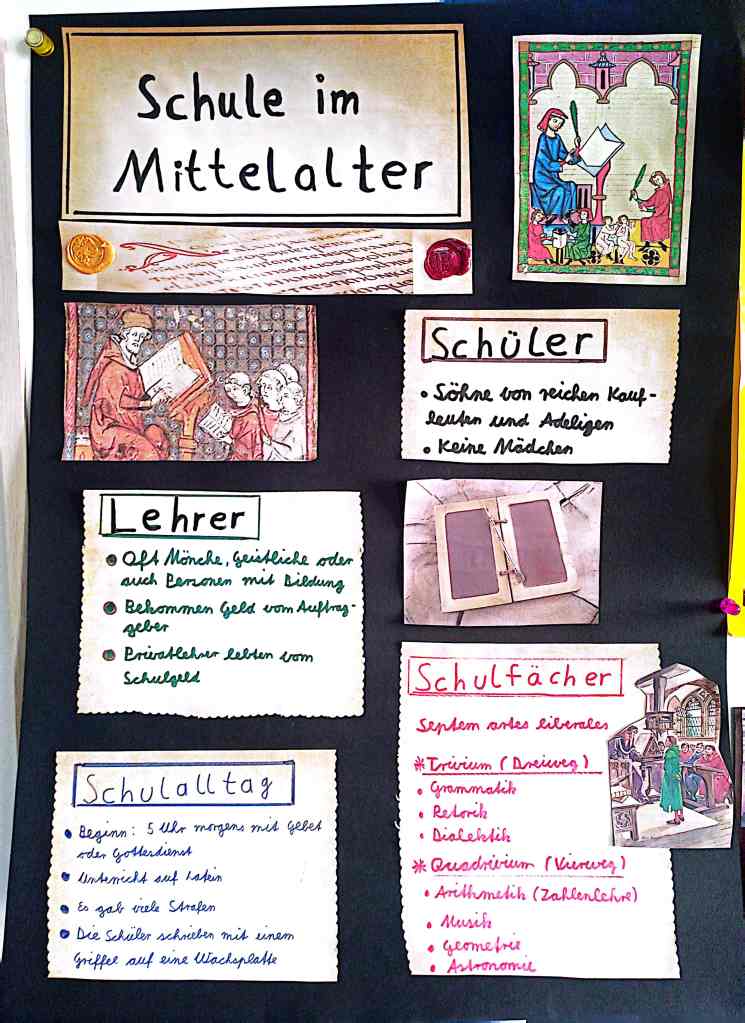 Schule im
Mittelalter
Schüler
• Söhne von reichen Kauf-
leuten und Adeligen
• Keine Mädchen
Lehrer
• Oft Mönche, Geistliche oder
auch Personen mit Bildung
• Bekommen Geld vom Auftrag-
geber
• Privatlehrer lebten vom
Schulgeld
Schulfächer
Septem artes liberales
* Trivium (Dreiweg)
• Grammatik
• Retorik
• Dialektik
* Quadrivium (Vierweg)
• Arithmetik (Zahlenlehre)
• Musik
• Geometrie
• Astronomie
Schulalltag
• Beginn: 5 Uhr morgens mit Gebet
oder Gottesdienst
• Unterricht auf Latein
• Es gab viele Strafen
• Die Schüler schrieben mit einem
Griffel auf eine Wachsplatte